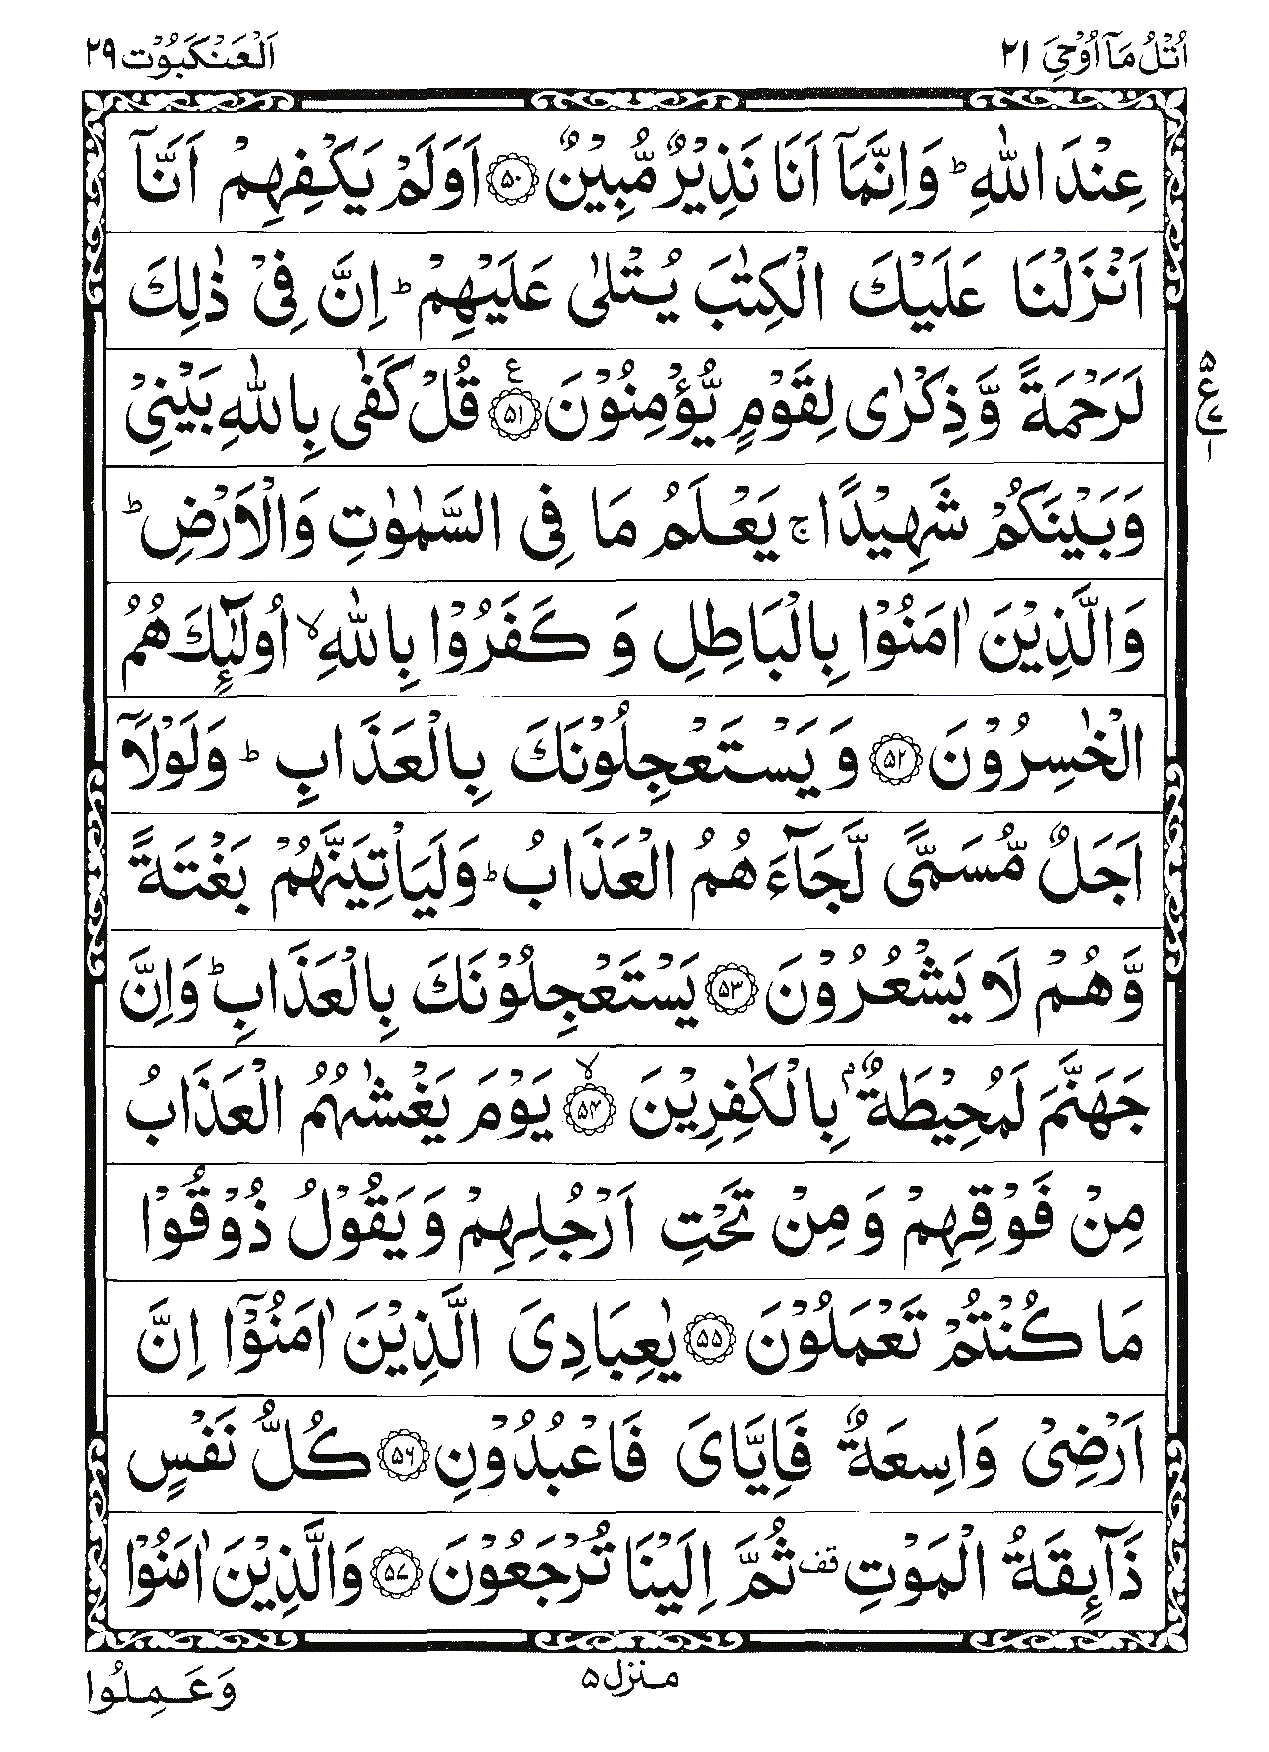 اُتْلُ مَآ اُوْحِىَ ٢١
اَلْعَنْكَبُوْت ٢٩
عِنْدَ اللّٰهِ ؕ وَاِنَّمَاۤ اَنَا نَذِيْرٌ مُّبِيْنٌ ۵۰ اَوَلَمْ يَكْفِهِمْ اَنَّاۤ
اَنْزَلْنَا عَلَيْكَ الْكِتٰبَ يُتْلٰى عَلَيْهِمْ ؕ اِنَّ فِىْ ذٰلِكَ
لَرَحْمَةً وَّذِكْرٰى لِقَوْمٍ يُّؤْمِنُوْنَ ۵۱ ع قُلْ كَفٰى بِاللّٰهِ بَيْنِىْ
۵ ع ١
وَبَيْنَكُمْ شَهِيْدًا ۚ يَعْلَمُ مَا فِى السَّمٰوٰتِ وَالْاَرْضِ ؕ
وَالَّذِيْنَ اٰمَنُوْا بِالْبَاطِلِ وَ كَفَرُوْا بِاللّٰهِ ۙ اُولٰٓئِكَ هُمُ
الْخٰسِرُوْنَ ۵۲ وَ يَسْتَعْجِلُوْنَكَ بِالْعَذَابِ ؕ وَلَوْلَاۤ
اَجَلٌ مُّسَمًّى لَّجَآءَهُمُ الْعَذَابُ ؕ وَلَيَاْتِيَنَّهُمْ بَغْتَةً
وَّهُمْ لَا يَشْعُرُوْنَ ۵۳ يَسْتَعْجِلُوْنَكَ بِالْعَذَابِ ؕ وَاِنَّ
جَهَنَّمَ لَمُحِيْطَةٌ ۢ بِالْكٰفِرِيْنَ ۵۴ ۙ يَوْمَ يَغْشٰىهُمُ الْعَذَابُ
مِنْ فَوْقِهِمْ وَمِنْ تَحْتِ اَرْجُلِهِمْ وَيَقُوْلُ ذُوْقُوْا
مَا كُنْتُمْ تَعْمَلُوْنَ ۵۵ يٰعِبَادِىَ الَّذِيْنَ اٰمَنُوْۤا اِنَّ
اَرْضِىْ وَاسِعَةٌ فَاِيَّاىَ فَاعْبُدُوْنِ ۵۶ كُلُّ نَفْسٍ
ذَآئِقَةُ الْمَوْتِ قف ثُمَّ اِلَيْنَا تُرْجَعُوْنَ ۵۷ وَالَّذِيْنَ اٰمَنُوْا
منزل ۵
وَعَمِلُوا